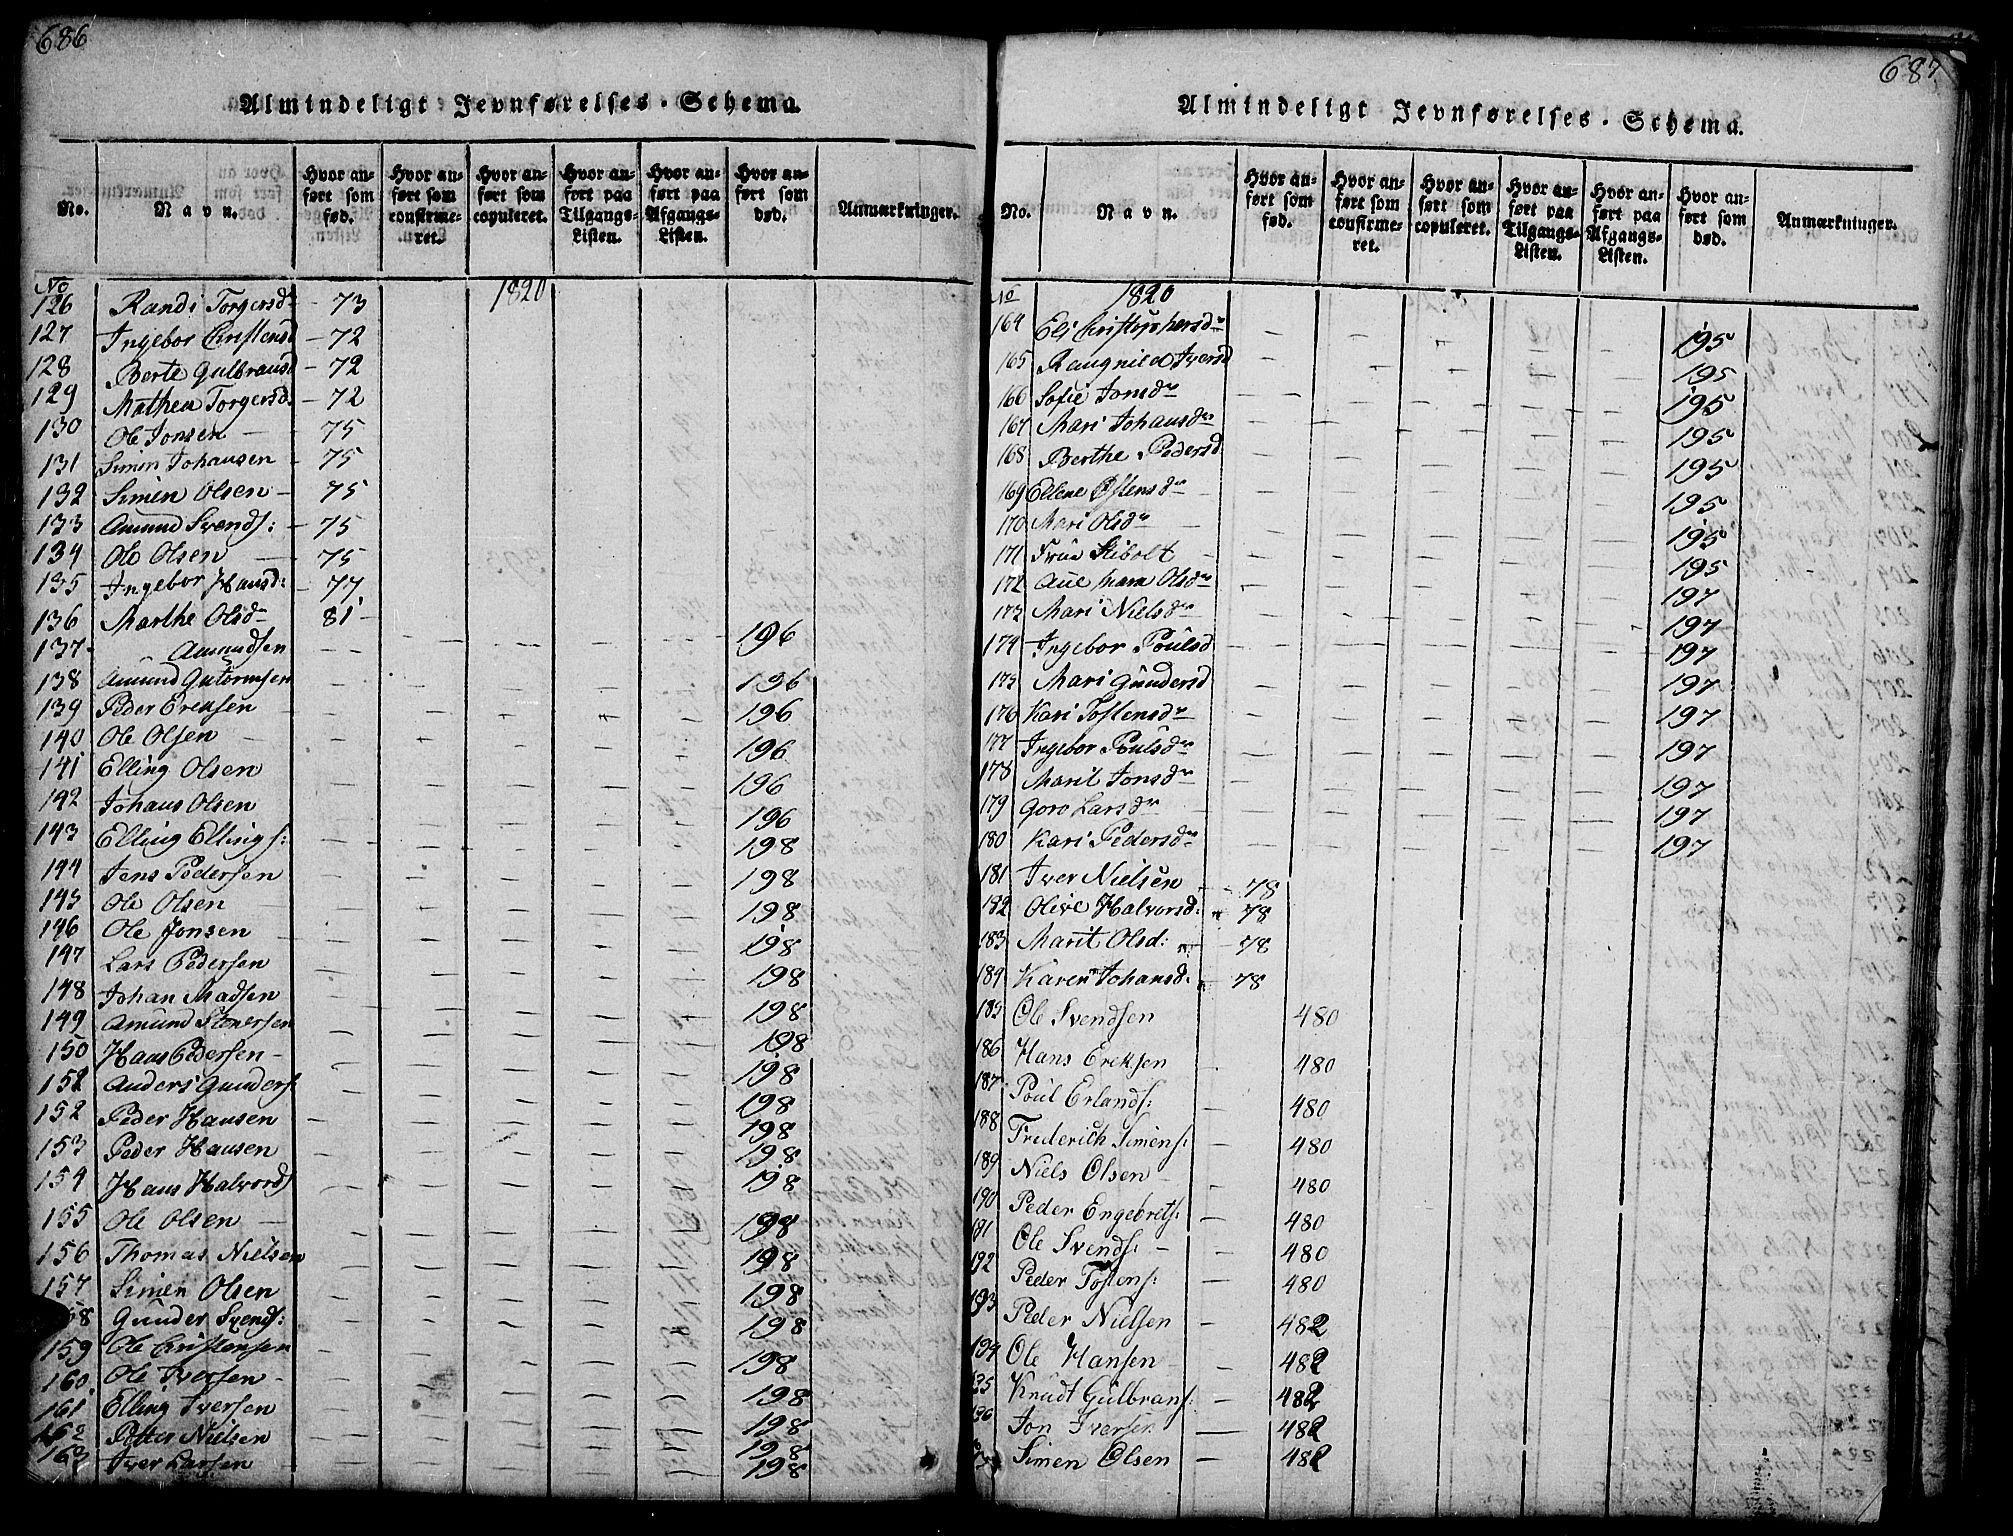 686
Almindeligt Jevnførelses-Schema.
No. Navn. Hvor anført som fød. Hvor anført som confirmeret. Hvor anført som copuleret. Hvor anført paa Tilgangs-Listen. Hvor anført paa Afgangs-Listen. Hvor anført som død. Anmærkninger.
No 1820
126 Randi Torgersdr 73
127 Ingebor Christensd 72
128 Berte Gulbransd 72
129 Mathea Torgersd. 72
130 Ole Jonsen 75
131 Simen Johansen 75
132 Simen Olsen 75
133 Amund Svends: 75
134 Ole Olsen 75
135 Ingebor Hansd: 77
136 Marthe Olsdr 81
137 Amundsen 196
138 Amund Gutormsen 196
139 Peder Ereksen 196
140 Ole Olsen 196
141 Elling Olsen 196
142 Johans Olsen 196
143 Elling Ellings: 198
144 Jens Pedersen 198
145 Ole Olsen 198
146 Ole Jonsen 198
147 Lars Pedersen 198
148 Johan Madsen 198
149 Amund Stenersen 198
150 Hans Pedersen 198
151 Anders Gunders: 198
152 Peder Hansen 198
153 Peder Hansen 198
154 Hans Halvords 198
155 Ole Olsen 198
156 Thomas Nielsen 198
157 Simen Olsen 198
158 Gunder Svends: 198
159 Ole Cristensen 198
160 Ole Iversen 198
161 Elling Iversen 198
162 Petter Nielsen 198
163 Iver Larsen 198
687
Almindeligt Jevnførelses-Schema.
No. Navn. Hvor anført som fød. Hvor anført som confirmeret. Hvor anført som copuleret. Hvor anført paa Tilgangs-Listen. Hvor anført paa Afgangs-Listen. Hvor anført som død. Anmærkninger.
No 1820
164 Eli Cristophersdr 195
165 Raugnild Iversd 195
166 Sofie Jonsdr 195
167 Mari Johansdr 195
168 Berthe Pedersd 195
169 Ellene Østensdr 195
170 Mari Olsdr 195
171 Frue Sibolt 195
172 Ane Maria Olsdr 197
173 Mari Nielsdr 197
174 Ingebor Poulsd 197
175 Mari Gundersd 197
176 Kari Tostensdr 197
177 Ingebor Poulsdr 197
178 Marit Jonsdr 197
179 Goro Larsdr 197
180 Kari Pedersdr 197
181 Iver Nielsen 78
182 Olive Halvorsd: 78
183 Marit Olsd: 78
184 Karen Johansd: 78
185 Ole Svendsen 480
186 Hans Ereksen 480
187 Poul Erlands: 480
188 Frederich Simens: 480
189 Niels Olsen 480
190 Peder Engebrets: 480
191 Ole Svends: 480
192 Peder Tostens: 480
193 Peder Nielsen 482
194 Ole Hansen 482
195 Knudt Gulbrans: 482
196 Jon Iversen 482
Simen Olsen 482